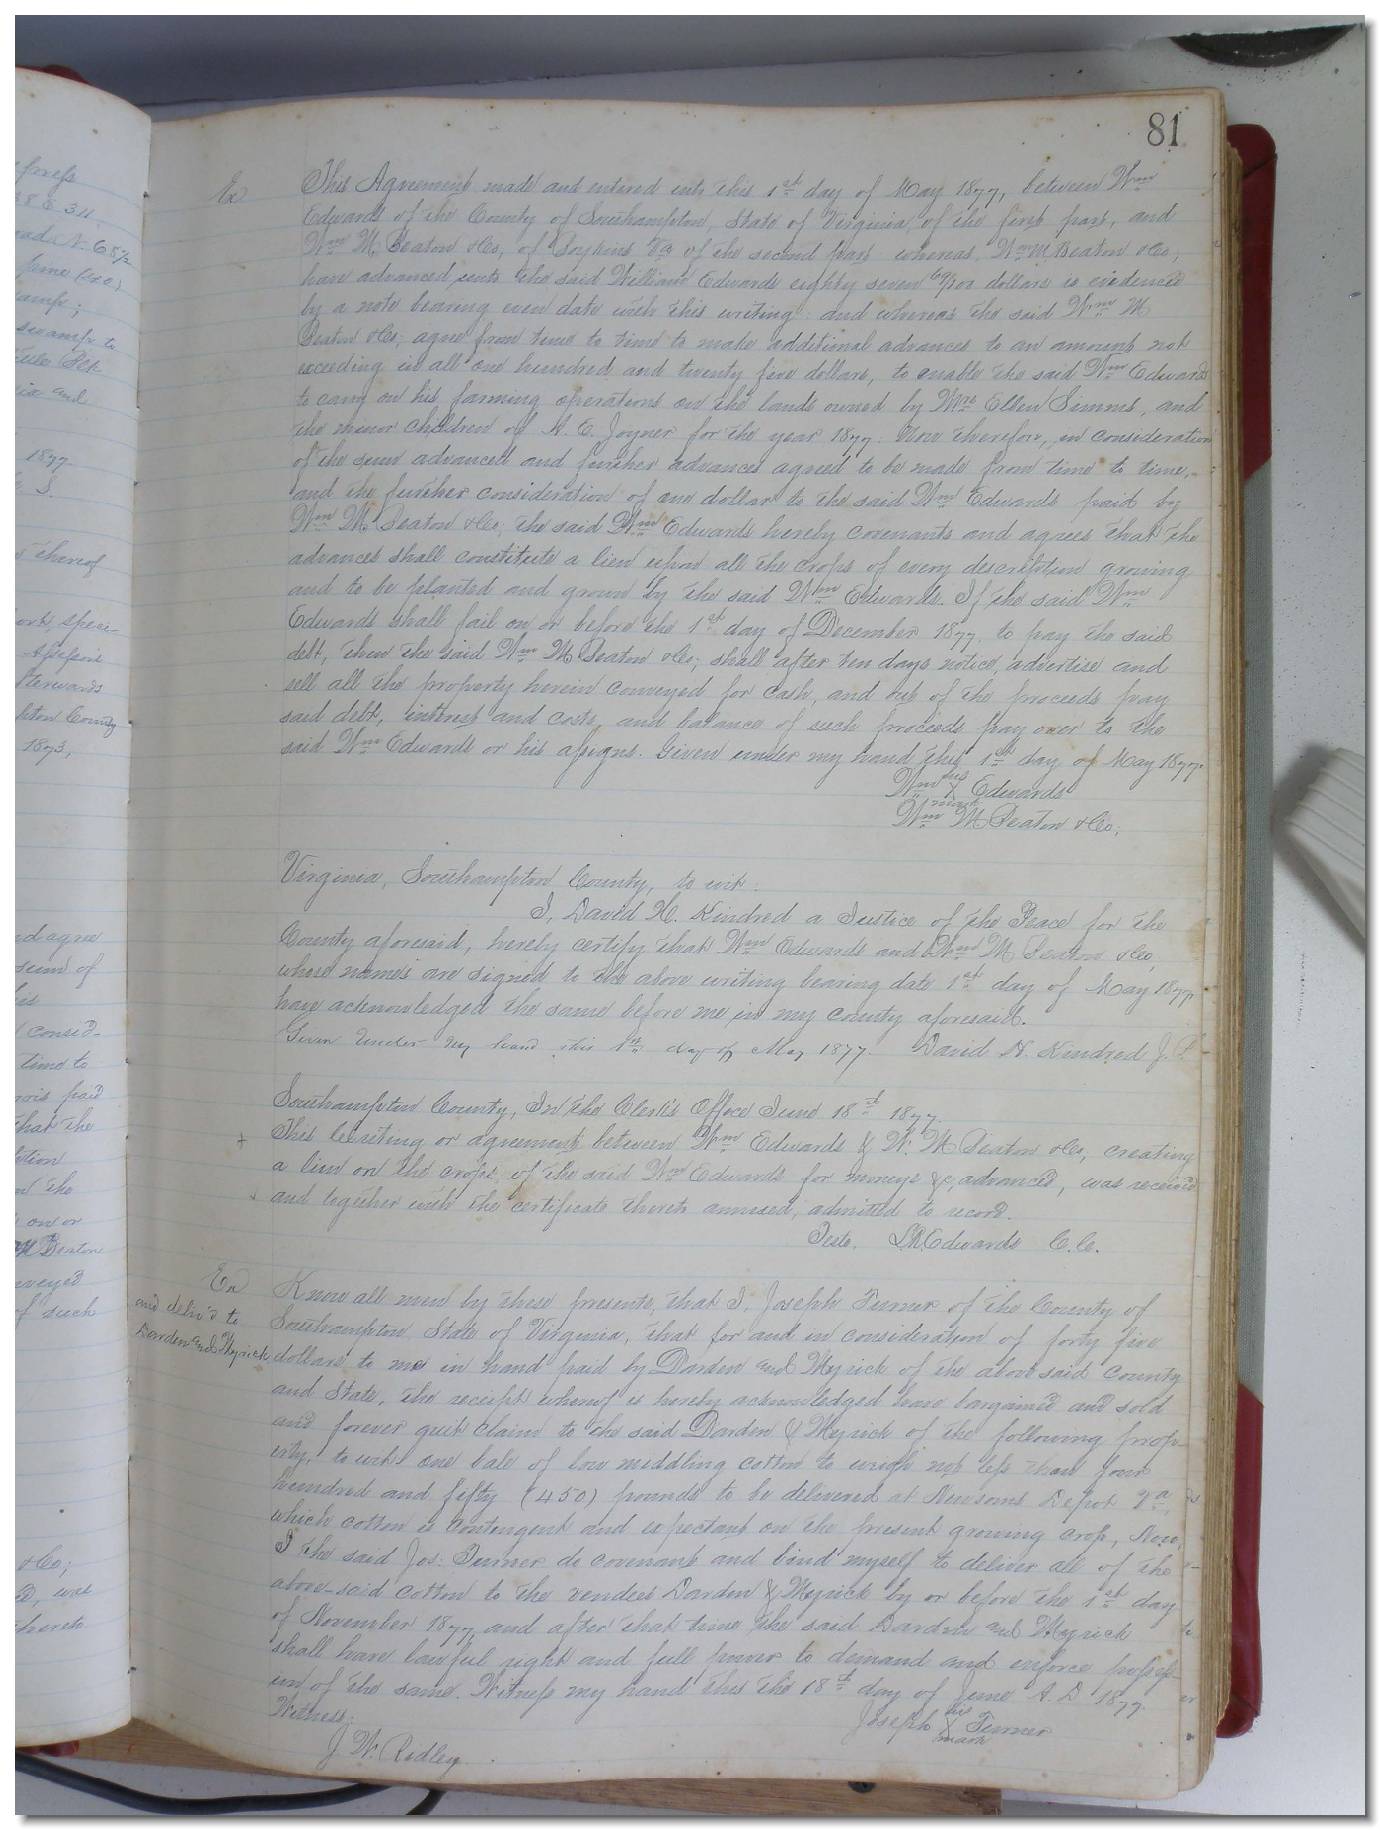 81
Ex
This Agreement made and entered into this 1st day of May 1877, between Wm
Edwards of the County of Southampton, State of Virginia, of the first part, and
Wm M. Beaton & Co, of Boykins Va of the second part whereas, Wm M Beaton & Co,
have advanced unto the said William Edwards eighty seven dollars is evidenced
by a note bearing even date with this writing: and whereas the said Wm M
Beaton & Co, agree from time to time to make additional advances to an amount not
exceeding in all one hundred and twenty five dollars, to enable the said Wm Edwards
to carry on his farming operations on the lands owned by Mrs Ellen Simms, and
the minor children of A. E. Joyner for the year 1877. Now therefore, in consideration
of the sum advanced and further advances agreed to be made from time to time,
and the further consideration of one dollar to the said Wm Edwards paid by
Wm M. Beaton & Co, the said Wm Edwards hereby covenants and agrees that the
advances shall constitute a lien upon all the crops of every description growing
and to be planted and grown by the said Wm Edwards. If the said Wm
Edwards shall fail on or before the 1st day of December 1877, to pay the said
debt, then the said Wm M Beaton & Co; shall after ten days notice, advertise and
sell all the property herein conveyed for cash, and out of the proceeds pay
said debt, interest and costs, and balance of such proceeds pay over to the
said Wm Edwards or his assigns. Given under my hand this 1st day of May 1877.
Wm his X mark Edwards
Wm M Beaton & Co;
Virginia, Southampton County, to wit:
I, David N. Kindred a Justice of the Peace for the
County aforesaid, hereby certify that Wm Edwards and Wm M Beaton & Co,
whose names are signed to the above writing bearing date 1st day of May 1877,
have acknowledged the same before me, in my county aforesaid.
Given under my hand this day of May 1877. David N. Kindred J. P.
Southampton County, In the Clerk's Office June 18th 1877.
This writing or agreement between Wm Edwards & W. M Beaton & Co, creating
a lien on the crops, of the said Wm Edwards for moneys &c, advanced, was received
and together with the certificate thereto annexed, admitted to record.
Teste. L R Edwards C. C.
Ex
and deliv'd to
Darden and Myrick
Know all men by these presents, that I, Joseph Turner of the County of
Southampton State of Virginia, that for and in consideration of forty five
dollars to me in hand paid by Darden and Myrick of the above said County
and State, the receipt whereof is hereby acknowledged have bargained and sold
and forever quit claim to the said Darden & Myrick of the following prop-
erty, to wit: one bale of low middling cotton to weigh not less than four
hundred and fifty (450) pounds to be delivered at Newsoms Depot Va,
which cotton is contingent and expectant on the present growing crop, Now,
I the said Jos: Turner do covenant and bind myself to deliver all of the
above-said cotton to the vendees Darden & Myrick by or before the 1st day
of November 1877, and after that time the said Darden and Myrick
shall have lawful right and full power to demand and enforce possess-
ion of the same. Witness my hand this the 18th day of June A. D 1877
Witness: Joseph his X mark Turner
J. W. Ridley